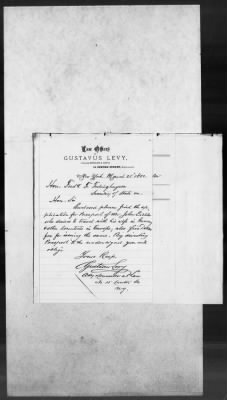 Law Office
OF
GUSTAVUS LEVY,
New York, March 21st 1882
Hon. Fredk F. Frelinghuysen
Secretary of State
Hon. Sir
Enclosed please find the ap-
plication for Passport of Mr. John
who desires to travel with his wife in
other Countries in Europe, also five Dollars
fee for issuing the same. By sending
Passport to the undersigned you will
oblige
Yours Resp.
Gustavus Levy
Atty & Counselor at Law
No 11 Centre St
N.Y.